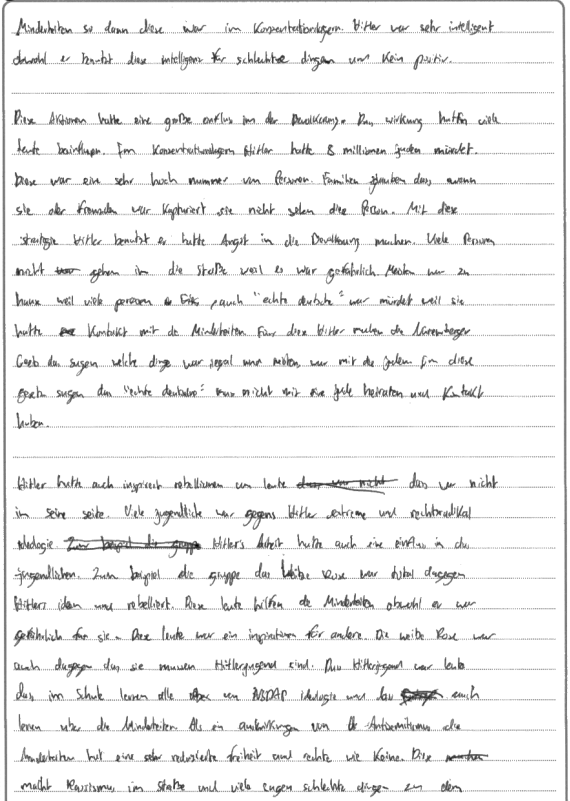 Minderheiten so dann diese war im Konzentrationlagern. Hitler war sehr intelligent
obwohl er benutzt diese intelligenz für schlechte dingen und kein positiv.
Diese Aktionen hatte eine große einflus im der Bevolkerung. Das wirkung hatten viele
leute beinflusen. Im Konzentrationlagern Hitler hatte 8 millionen juden mördet.
Diese war ein sehr hoch nummer von Personen. Familien glauben dass wenn
sie oder Freunden war Kapturiert sie nicht sehen diese Person. Mit diese
strategie Hitler benutzt er hatte Angst in die Bevolkerung machen. Viele Person
nicht gehen im die straße weil es war gefährlich. Meisten war zu
hause weil viele personen, auch "echte deutsche" war mördet weil sie
hatte Kontakt mit de Minderheiten. Für diese Hitler machen die Nüremberger
das sagen welche dinge war legal und war mit die Juden. Im diese
sagen das "echte deutsche" nicht mit eine jude heiraten und Kontakt
haben.
Hitler hatte auch inspiriert rebellionen um leute das war nicht
im seine seite. Viele jugendliche war gegens Hitler extreme und rechtsradikal
ideologie. Hitler's Arbeit hatte auch eine einfluss in die
jungendlichen. Zum beispiel die gruppe das Weiße Rose war total dagegen
Hitlers ideen und rebelliert. Diese leute hilfen de Minderheiten obwohl er war
gefährlich für sie. Diese leute war ein inspiration für andere. Die weiße Rose war
auch dagegen das sie mussen Hitlerjugend sind. Das Hitlerjugend war leute
das im Schule lernen alle von NSDAP ideologie und das auch
lernen uber die Minderheiten. Als ein auswirkungen von Antisemitismus die
Minderheiten hat eine sehr reduzierte freiheit und rechte wie Keine. Diese
macht Rassismus im straße und viele sagen schlechte dingen zu dem